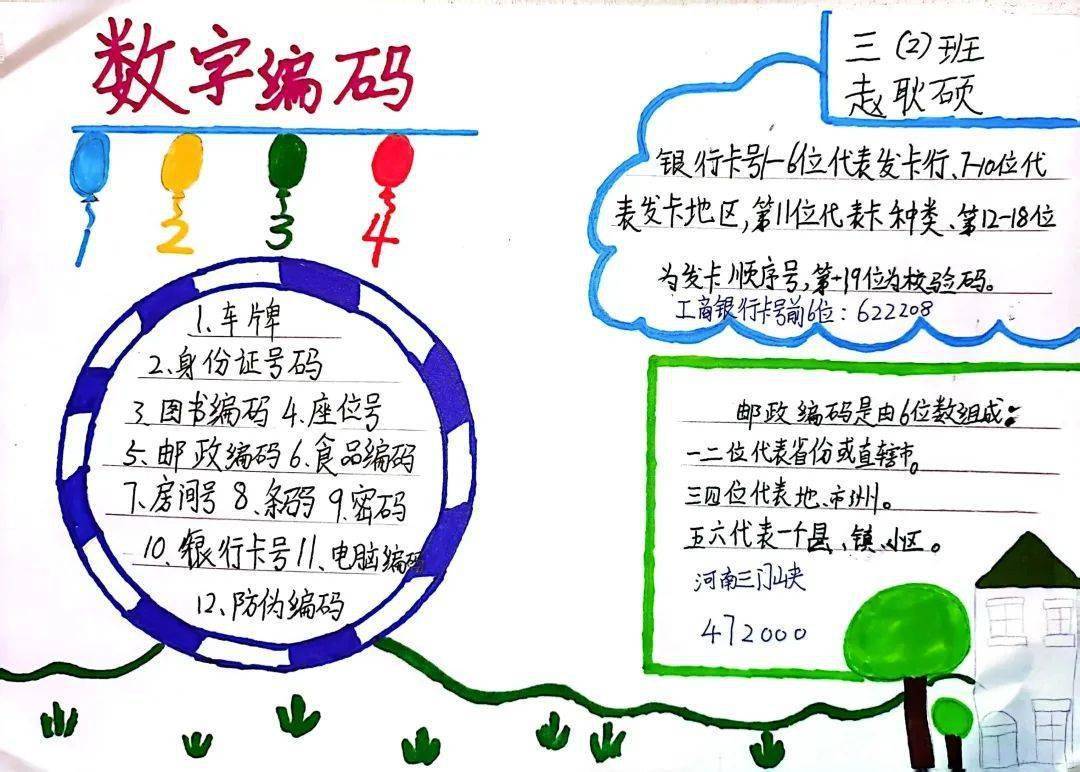 数字编码
1 2 3 4
三(2)班
赵耿硕
银行卡号1-6位代表发卡行、7-10位代
表发卡地区,第11位代表卡种类、第12-18位
为发卡顺序号,第-19位为校验码。
工商银行卡号前6位:622208
1、车牌
2、身份证号码
3、图书编码 4、座位号
5、邮政编码 6、食品编码
7、房间号 8、条码 9、密码
10、银行卡号 11、电脑编码
12、防伪编码
邮政编码是由6位数组成:
一二位代表省份或直辖市。
三四位代表地、市、州。
五六代表一个县、镇、小区。
河南三门峡
472000